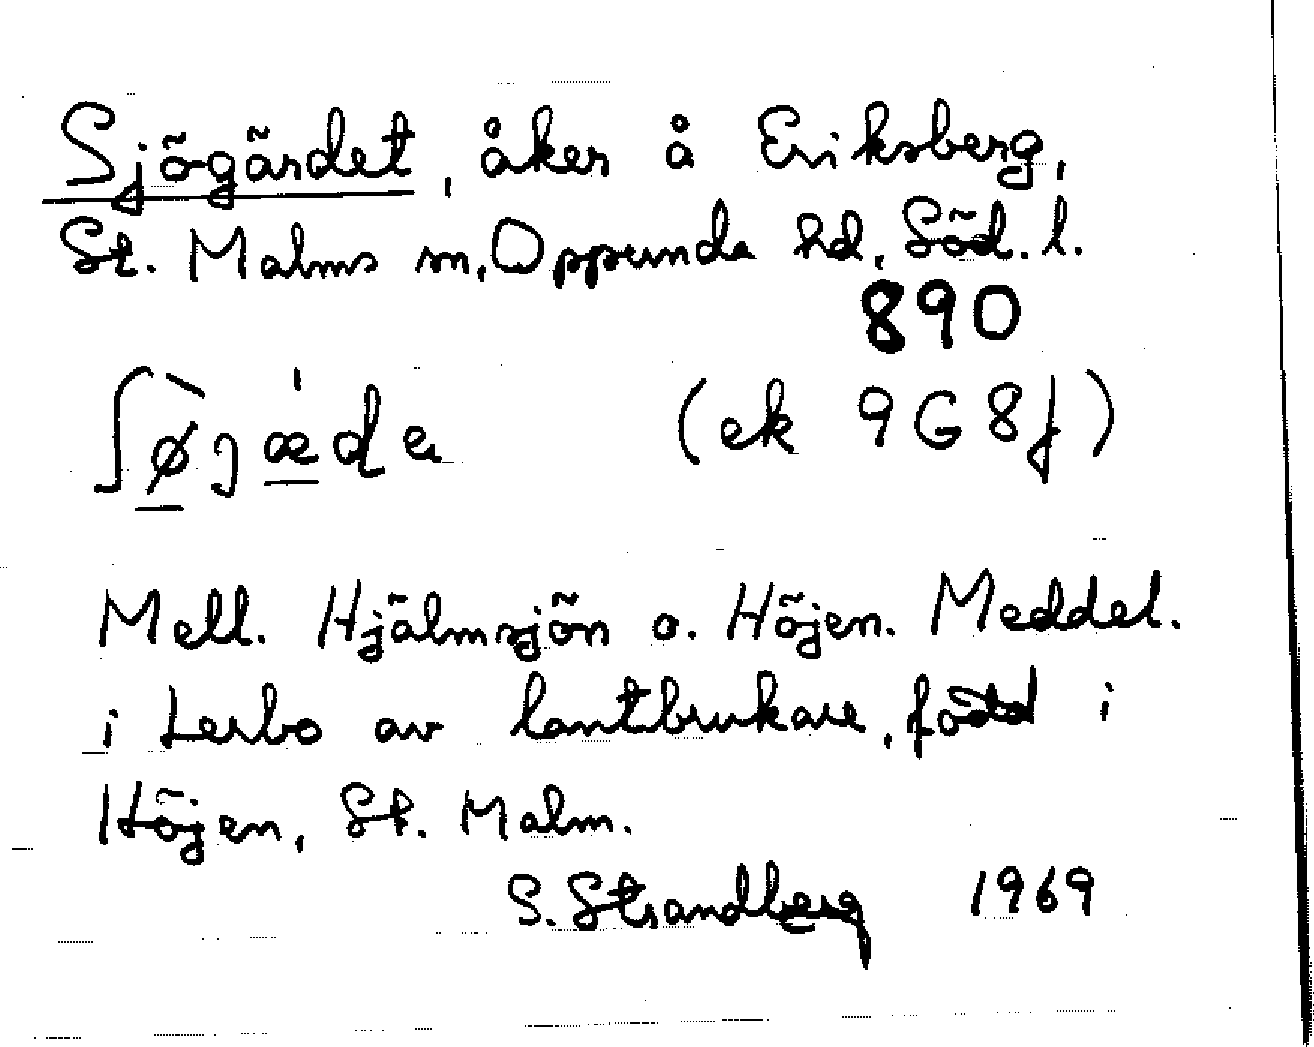 Sjögärdet, åker å Eriksberg,
St. Malms sn, Oppunda hd, Söd. l.
890
ʃø̀jǽda (ek 9G8f)
Mell. Hjälmsjön o. Höjen. Meddel.
i Lerbo av lantbrukare, född i
Höjen, St. Malm.
S. Strandberg 1969